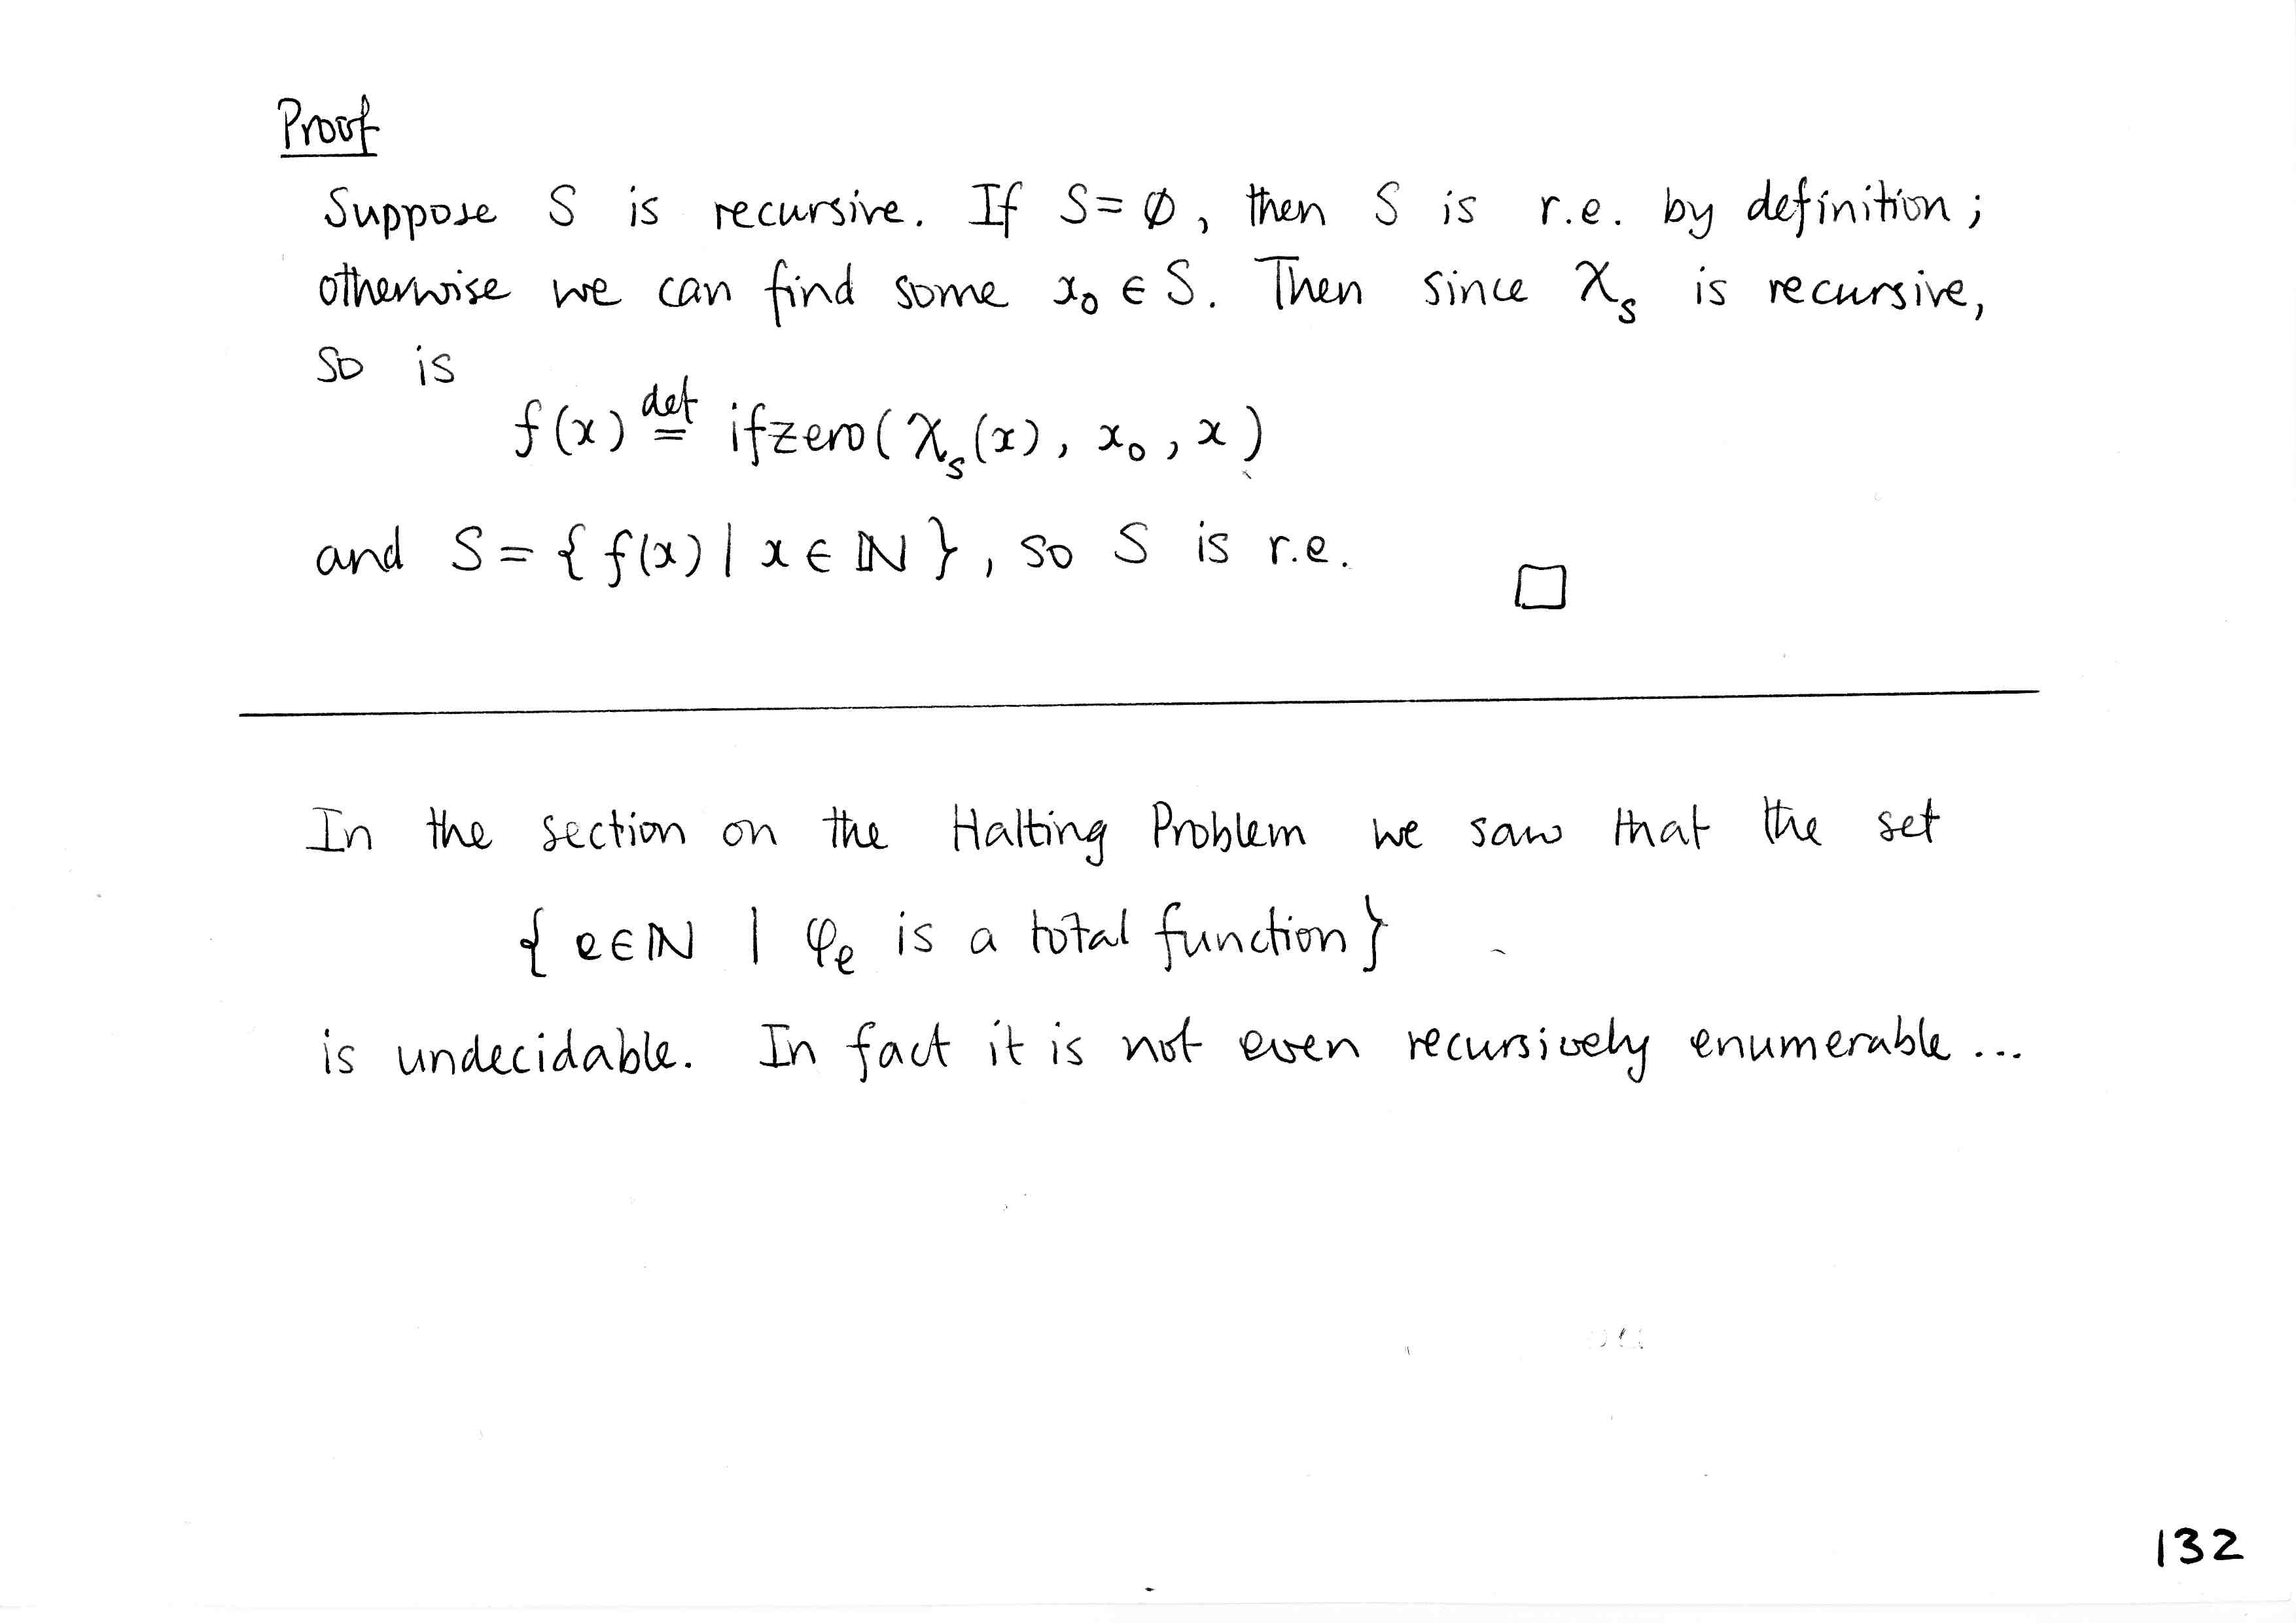 Proof
Suppose S is recursive. If S = ∅, then S is r.e. by definition;
otherwise we can find some x₀ ∈ S. Then since χ_S is recursive,
so is
f(x) ≝ ifzero(χ_S(x), x₀, x)
and S = { f(x) | x ∈ ℕ }, so S is r.e. □
In the section on the Halting Problem we saw that the set
{ e∈ℕ | φ_e is a total function}
is undecidable. In fact it is not even recursively enumerable...
132